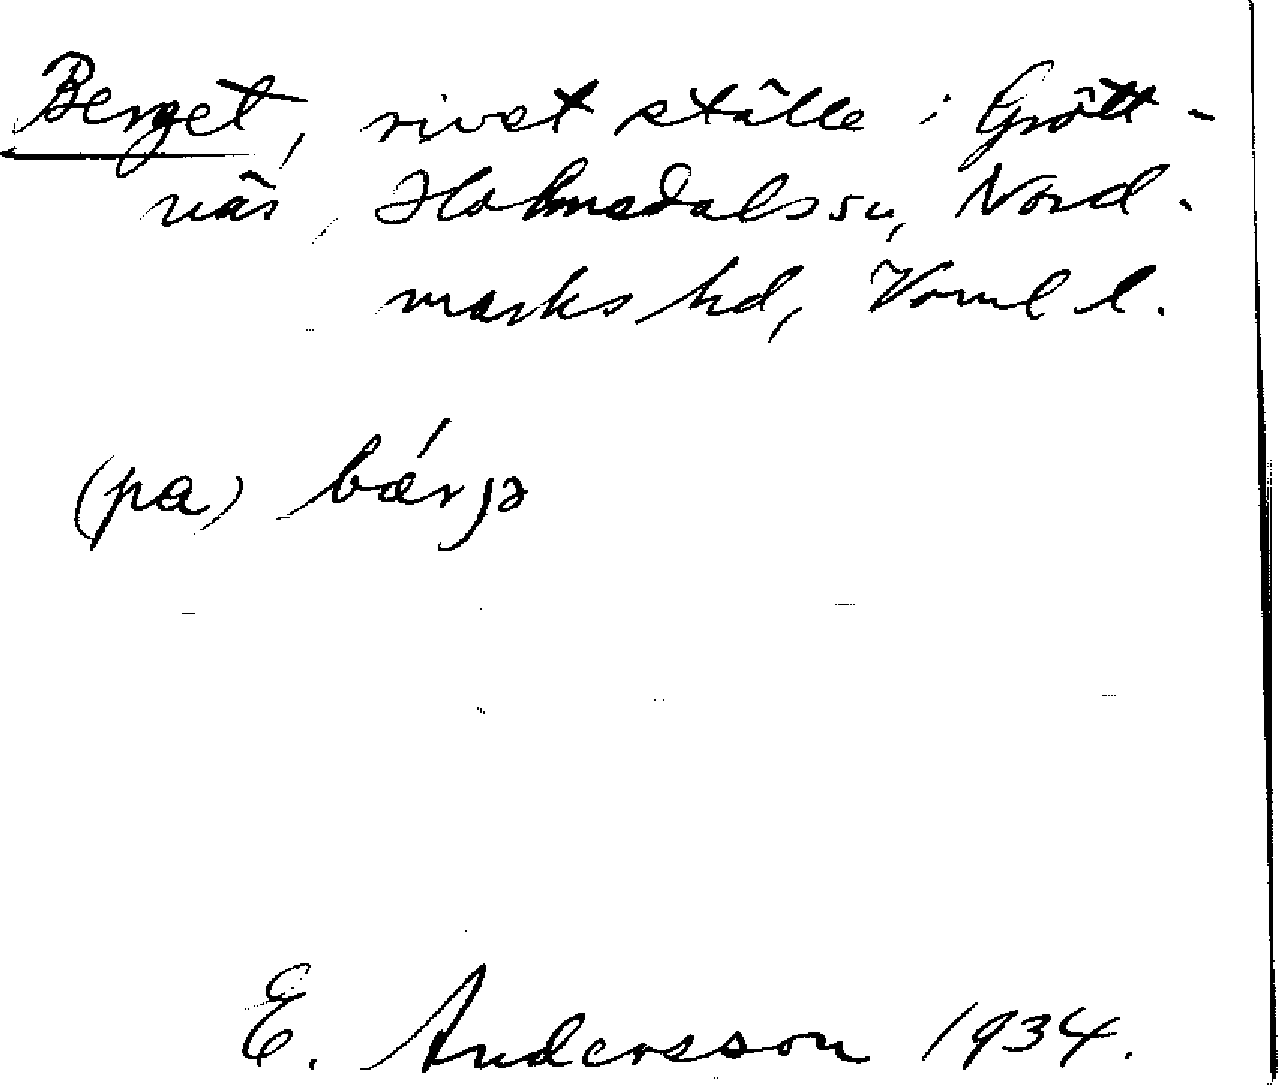 Berget, rivet ställe i Grött-
näs, Holmedals sn, Nord-
marks hd, Verml l.
(pa) bǽrjə
E. Andersson 1934.